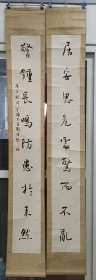 居安思危雷驚而不亂
警鐘長鳴防患於未然